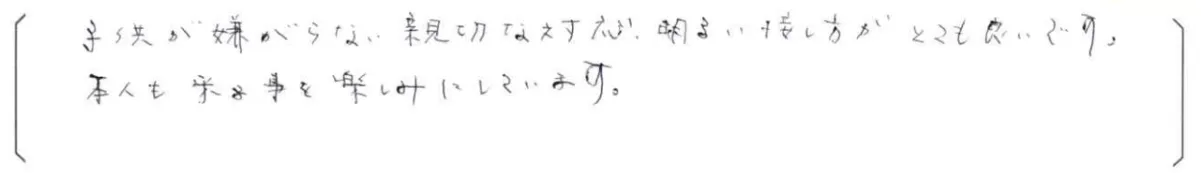 子供が嫌がらない親切な対応、明るい接し方がとても良いです。
本人も来る事を楽しみにしています。